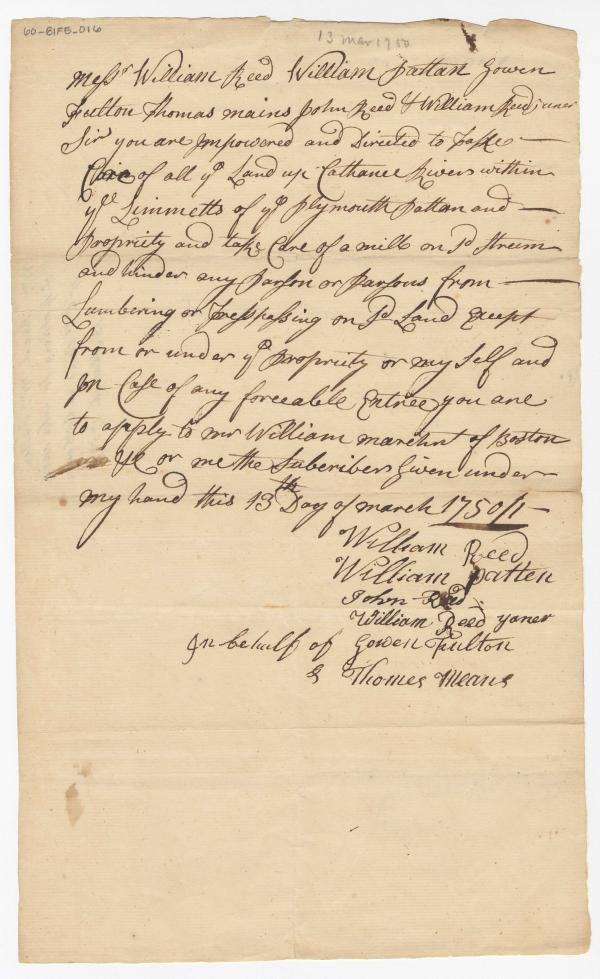 60-81FB-016
13 Mar 1750
Messrs William Reed William Pattan Gowen
Fulton Thomas mains John Reed & William Reed juner
Sir you are Impowered and Directed to take
Care of all ye Land up Cathance Rivers within
ye Limmetts of ye Plymouth Pattan and
Propriety and take Care of a mill on sd Streem
and hinder any Parson or Parsons from
Lumbering or Tresspassing on sd Land Except
from or under ye Propriety or my Self and
In Case of any forceable Entree you are
to apply to mr William marchent of Boston
or me the Subcriber Given under
my hand this 13th Day of march 1750/1
William Reed
William Patten
John Red
William Reed yoner
In behalf of Gowen Fulton
& Thomes Means